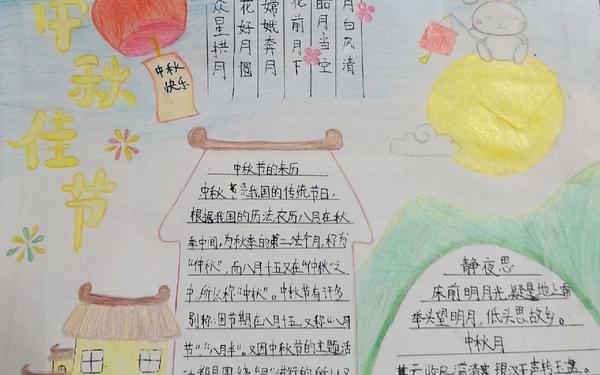 中秋佳节
中秋
快乐
月白风清
皓月当空
花前月下
嫦娥奔月
花好月圆
众星拱月
中秋节的来历
中秋节是我国的传统节日,
根据我国的历法,农历八月在秋
季中间,为秋季的第二个月,称为
“仲秋”,而八月十五又在“仲秋”之
中,所以称“中秋”。中秋节有许多
别称:因节期在八月十五,又称“八月
节”“八月半”。又因中秋节的主题活
动都是围绕“月”进行的,所以又
静夜思
床前明月光,疑是地上霜
举头望明月,低头思故乡。
中秋月
暮云收尽溢清寒,银汉无声转玉盘。